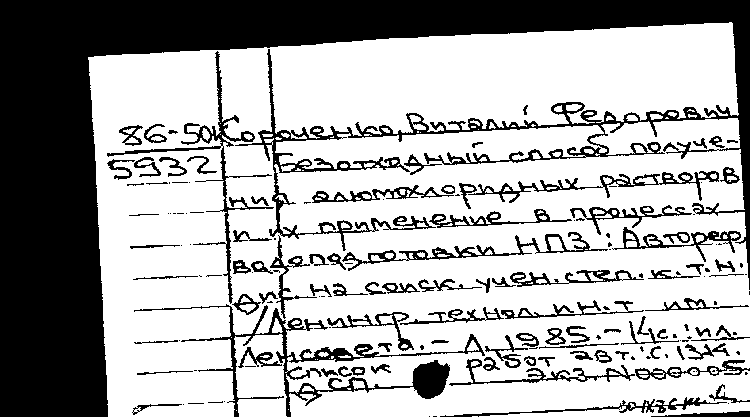 86-50к Сороченко, Виталий Федорович
5932 Безотходный способ получе-
ния алюмохлоридных растворов
и их применение в процессах
водоподготовки НПЗ : Автореф.
дис. на соиск. учен. степ. к. т. н.
/ Ленингр. технол. ин-т им.
Ленсовета. - Л. 1985. - 14с. : ил.
Список работ авт.: с. 13-14.
ДСП. Экз. N00005.